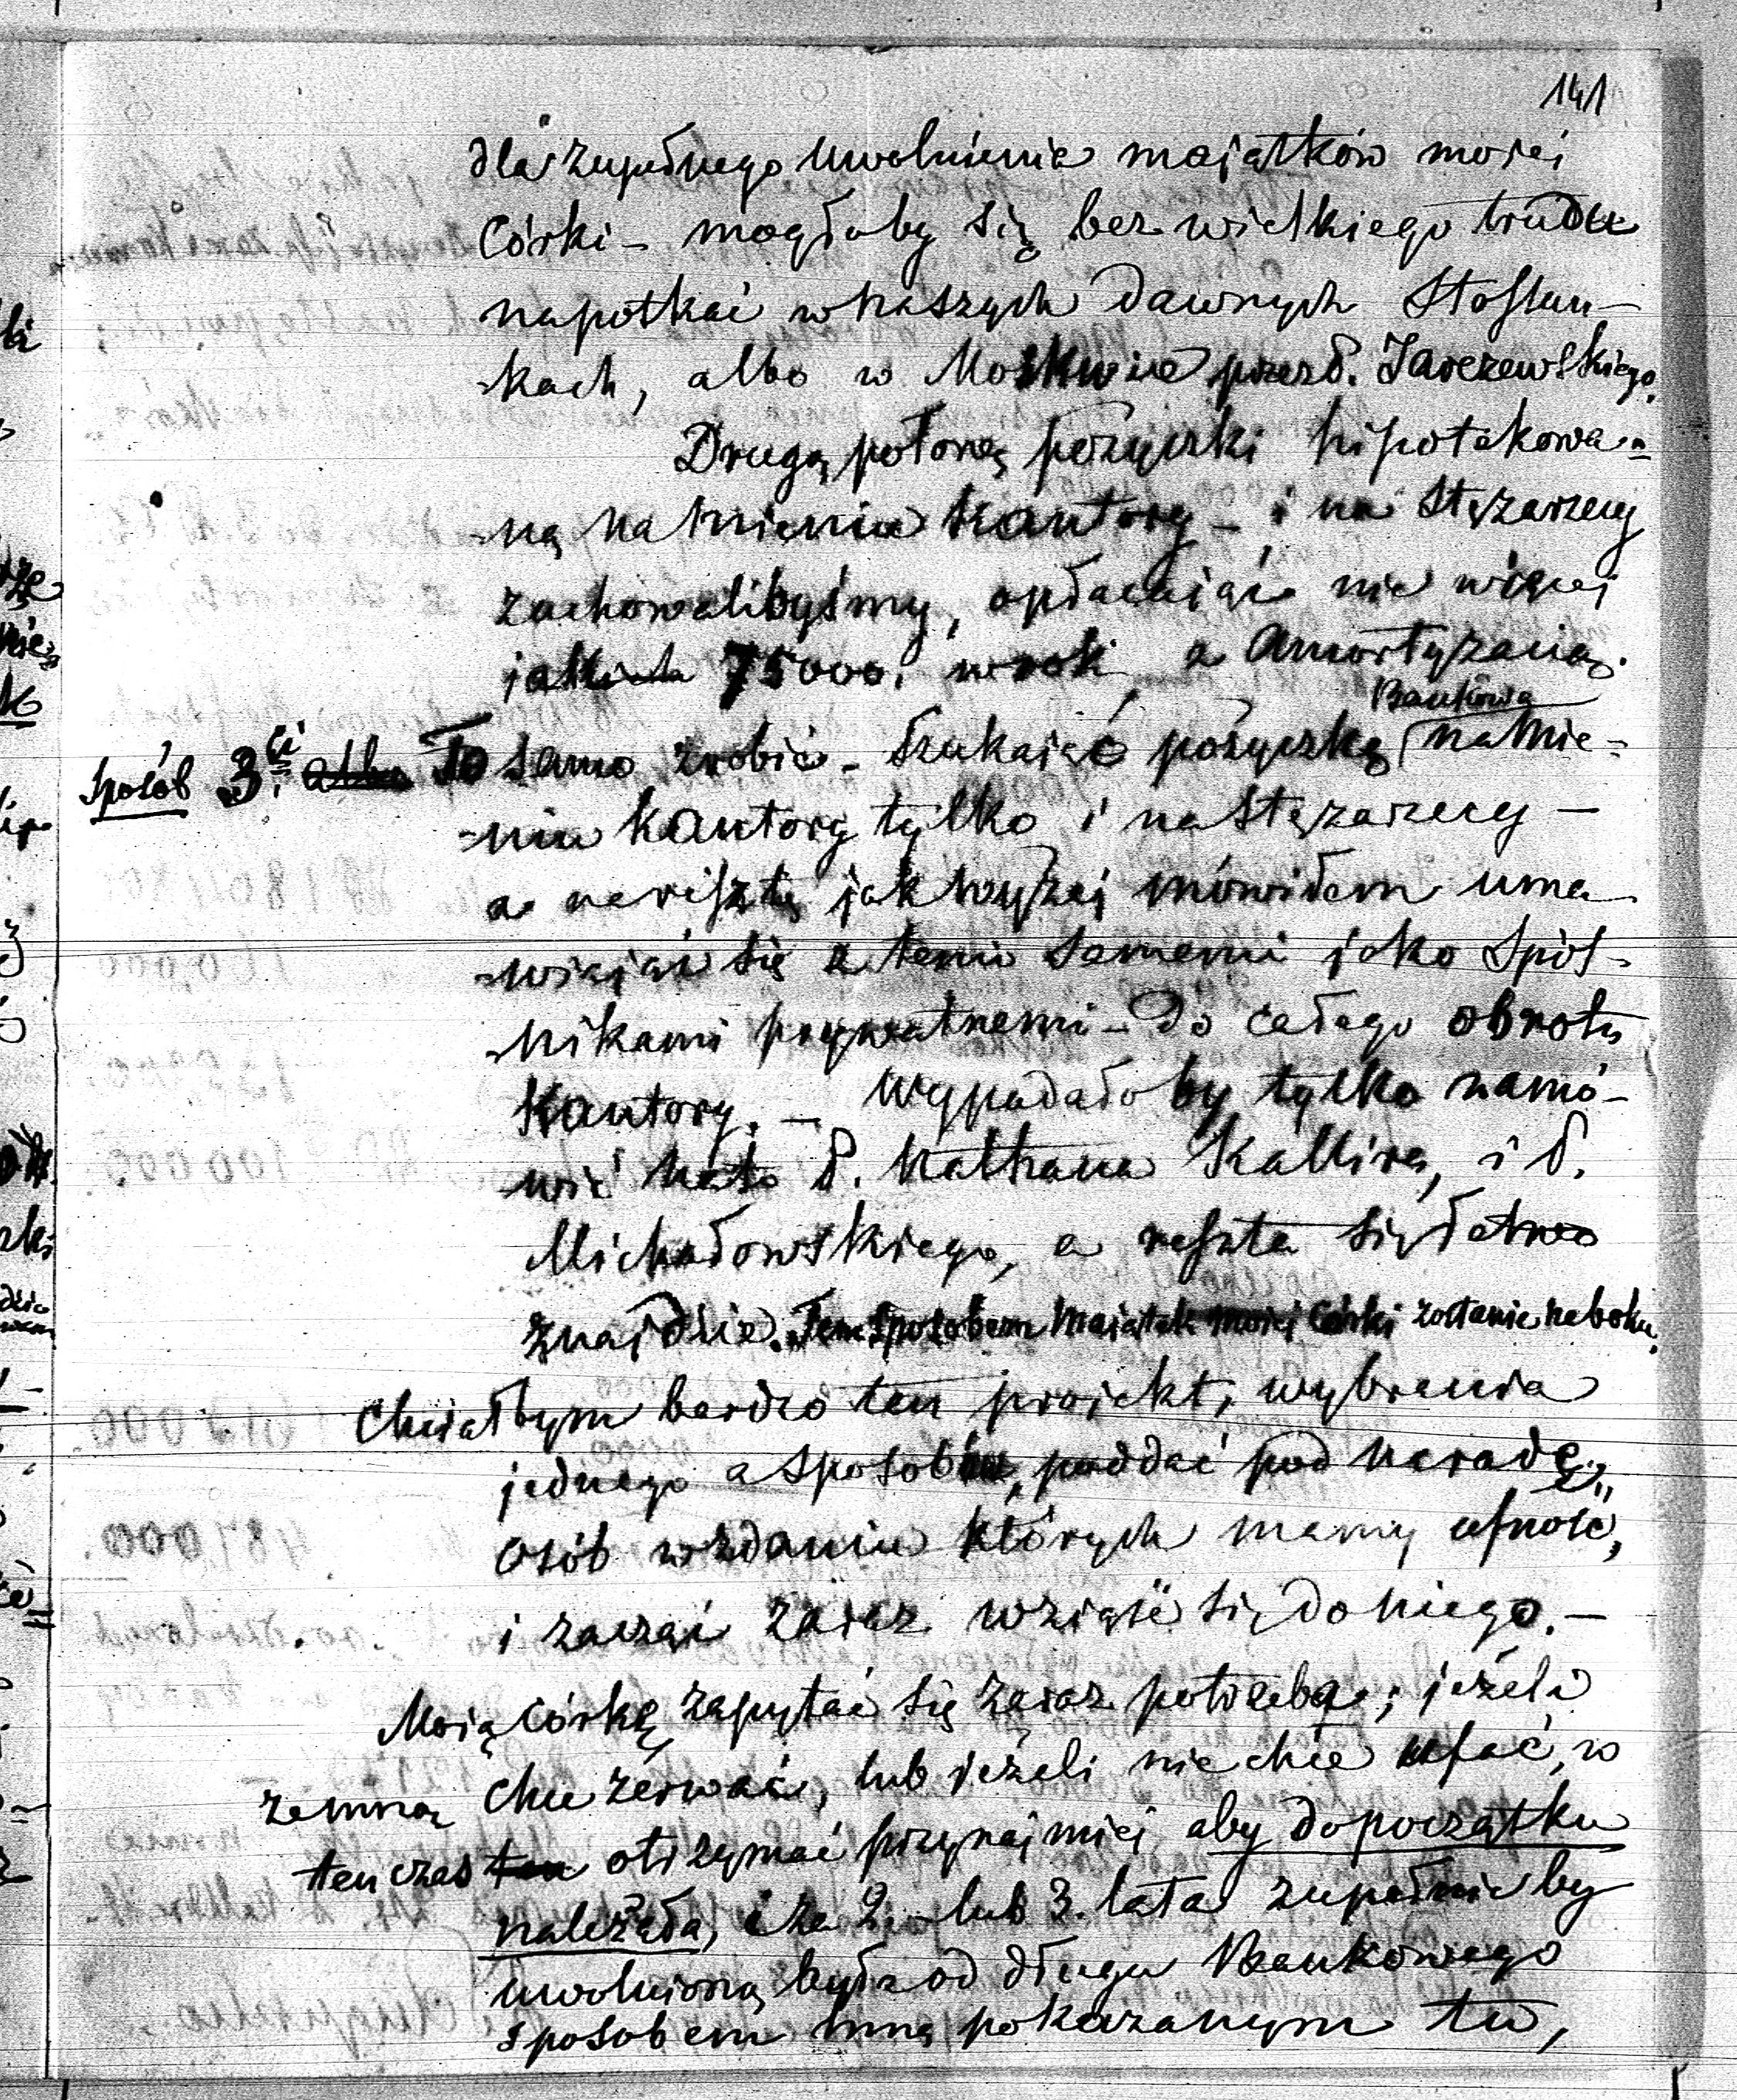 141
dla zupełnego uwolnienia majątków moiéj
Córki – mogłoby się bez wielkiego trudu
napotkać w naszych dawnych Stosun–
–kach, albo w Moskwie przez P. Jarczewskiego.
Drugą połowę pożyczki hipotekowa–
–ną na Mieniu Kantory – i na Stężarzecy
zachowalibyśmy, opłacaiąc nie więcej
jak 75000. w rok z Amortyzacią.
Sposób 3ci. albo To samo zrobić – Szukaiąc pożyczkę Bankową na Mie–
–niu Kantory tylko i na Stężarzecy –
a na resztę jak wyżej mówiłem uma
–wiaiąc się z temi samemi jako Spól–
–nikami prywatnemi – do całego obrotu
Kantory. – Wypadałoby tylko namó–
–wić na to P. Nathana Kallira, i P.
Michałowskiego, a reszta się łatwo
znajdzie. Tem sposobem Maiątek moiéj Córki zostanie na boku.
Chciałbym bardzo ten projekt, wybrania
jednego z sposobów, poddać pod naradę
osób w zdaniu których mamy ufność,
i zacząć zaraz wziąść się do niego. –
Moią Córkę zapytać się zaraz potrzeba; jeżeli
zemną chce zerwać, lub jeżeli nie chce ufać, w
tenczas ten otrzymać przynajmiéj aby do początku
należała, i za 2. lub 3. lata zupełnie by
uwolnioną była od długu Bankowego
sposobem mną pokazanym tu,